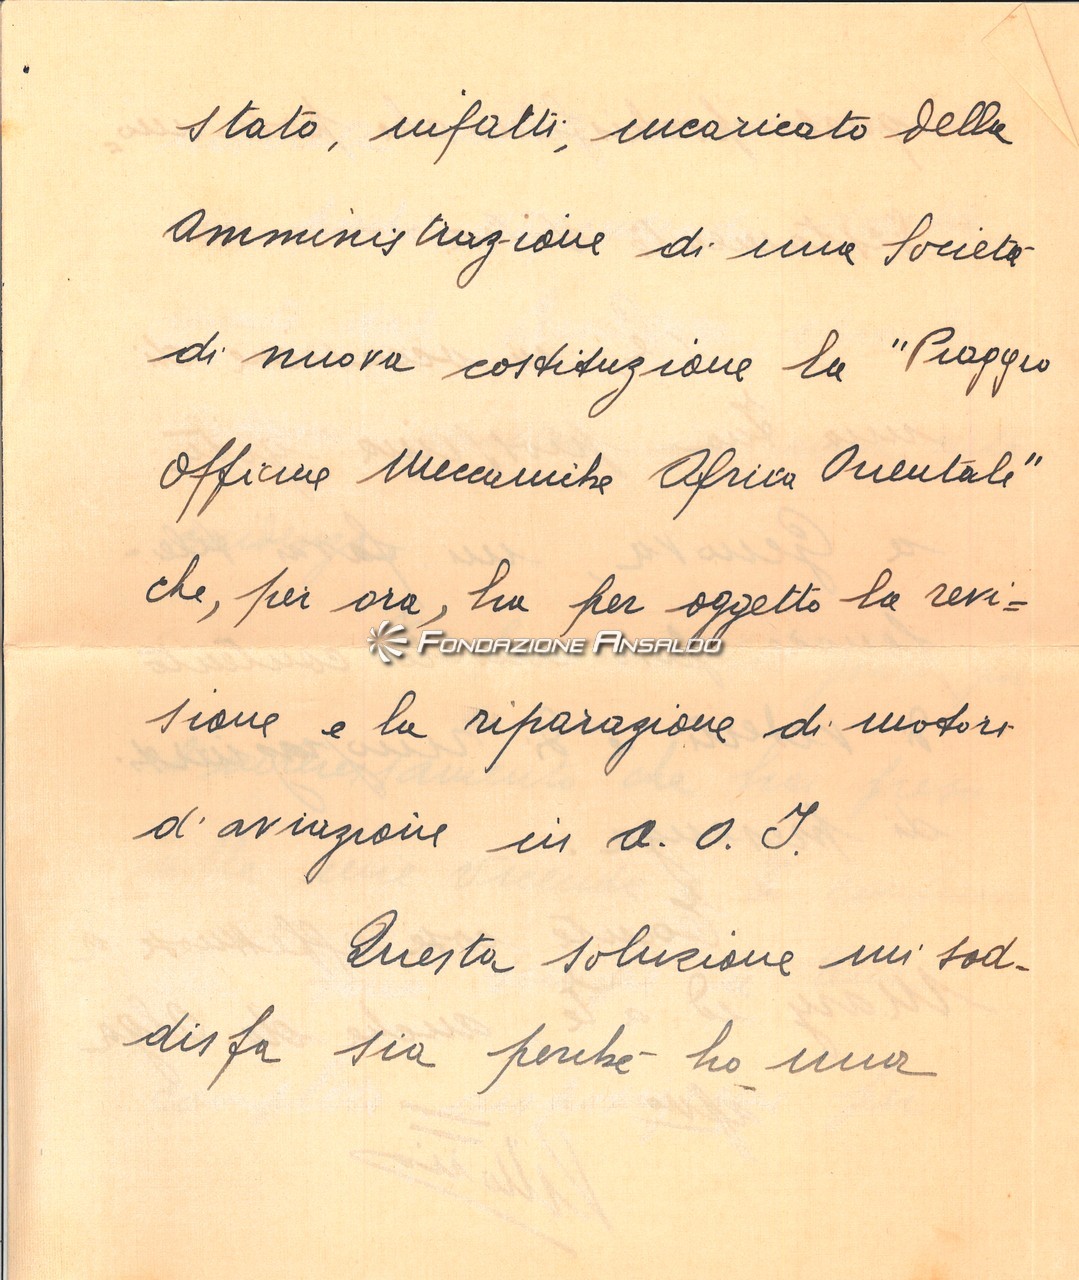 stato, infatti, incaricato della
Amministrazione di una Società
di nuova costituzione la "Piaggio
Officine Meccaniche Africa Orientale"
che, per ora, ha per oggetto la revi=
FONDAZIONE ANSALDO
sione e la riparazione di motori
d'aviazione in A. O. I.
Questa soluzione mi sod-
disfa sia perché ho una